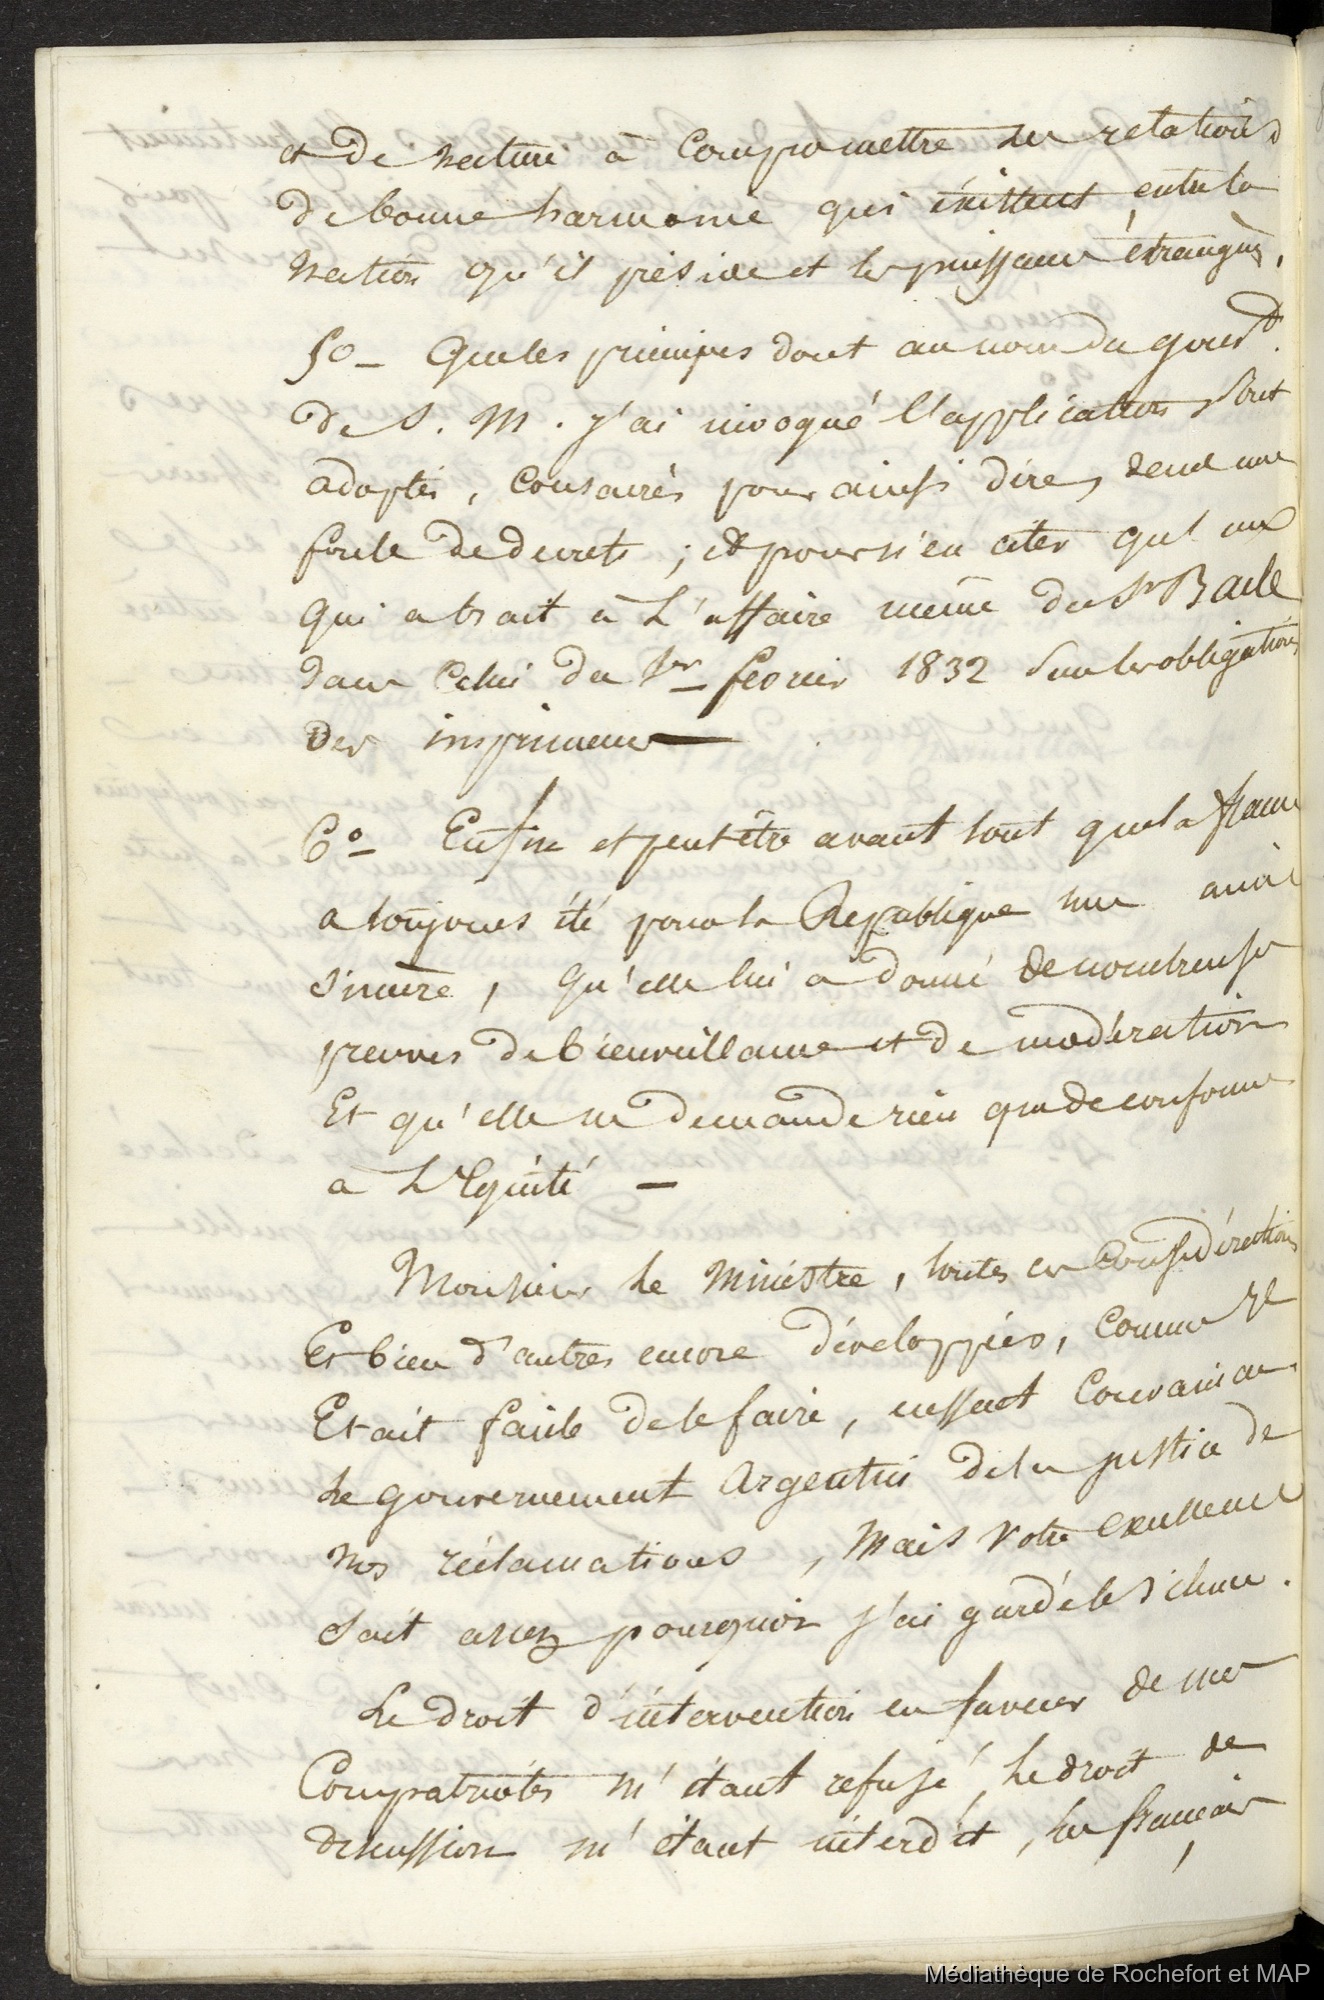 et de nature à compromettre les relations
de bonne harmonie qui éxistent entre la
nation qu'il préside et les puissances étrangères,
5o_ Que les principes dont au nom du gouvt.
de S. M. j'ai invoqué l'application sont
adoptés, consacrés pour ainsi dire, dans une
foule de decrets ; et pour n'en citer qu'un
qui a trait à L'affaire même du Sr Bacle
dans Celui du 1er fevrier 1832 sur les obligations
des imprimeurs —
6o_ Enfin et peut être avant tout que la france
a toujours été pour la République une amie
sincère, qu'elle lui a donné de nombreuses
preuves de bienveillance et de modération
Et qu'elle ne demande rien que de conforme
à L'Equité —
Monsieur le Ministre, toutes ces considérations
Et bien d'autres encore développées, comme Il
Etait facile de le faire, eussent convaincu
Le gouvernement Argentin de la justice de
nos réclamations, Mais Votre Excellence
sait assez pourquoi j'ai gardé le silence.
Le droit d'intervention en faveur de mes
Compatriotes m'étant refusé, le droit de
discussion m'étant interdit, les français,
Médiathèque de Rochefort et MAP